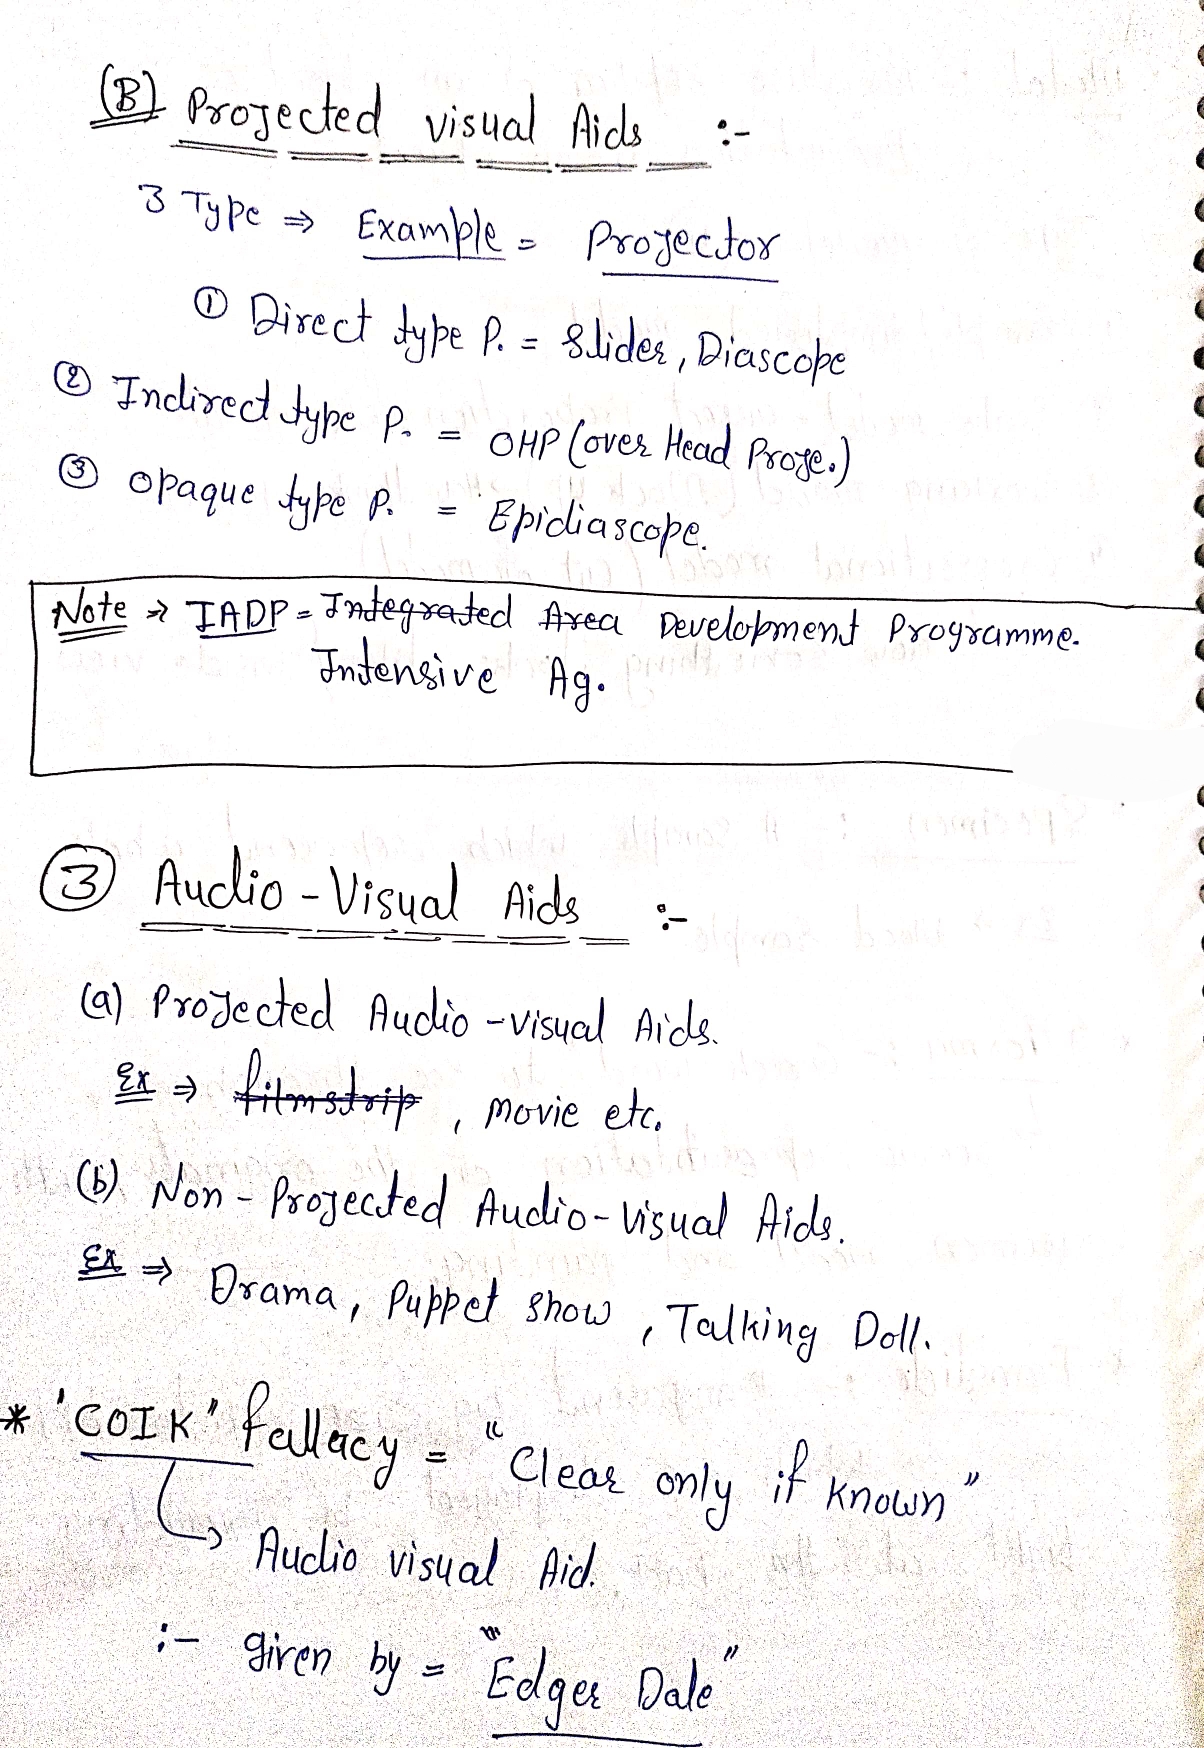 (B) Projected visual Aids :-
3 Type ⇒ Example = Projector
① Direct type P. = Slider, Diascope
② Indirect type P. = OHP (over Head Proje.)
③ opaque type P. = Epidiascope.
Note ⇒ IADP = Integrated Area Development Programme.
Intensive Ag.
③ Audio-Visual Aids :-
(a) Projected Audio-visual Aids.
Ex ⇒ filmstrip, movie etc.
(b) Non-Projected Audio-Visual Aids.
Ex ⇒ Drama, Puppet show, Talking Doll.
* 'COIK" fallacy = "Clear only if known"
↳ Audio visual Aid.
:- given by = "Edger Dale"